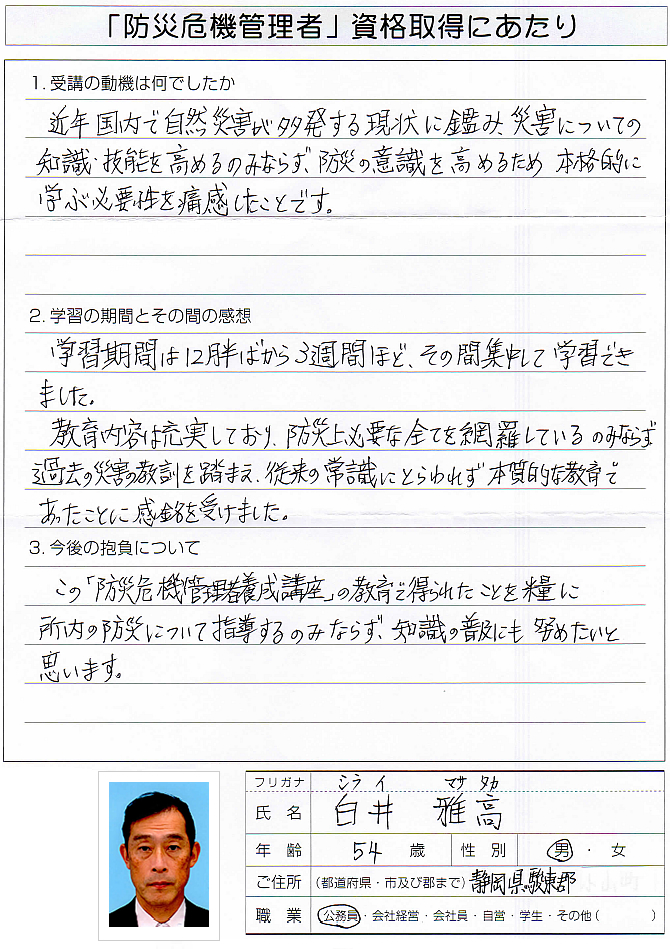 「防災危機管理者」資格取得にあたり
1. 受講の動機は何でしたか
近年国内で自然災害が多発する現状に鑑み、災害についての
知識・技能を高めるのみならず、防災の意識を高めるため 本格的に
学ぶ必要性を痛感したことです。
2. 学習の期間とその間の感想
学習期間は12月半ばから3週間ほど、その間集中して学習でき
ました。
教育内容は充実しており、防災上必要な全てを網羅しているのみならず
過去の災害の教訓を踏まえ、従来の常識にとらわれず本質的な教育で
あったことに感銘を受けました。
3. 今後の抱負について
この「防災危機管理者養成講座」の教育で得られたことを糧に
所内の防災について指導するのみならず、知識の普及にも努めたいと
思います。
フリガナ シライ マサタカ
氏名 白井 雅高
年齢 54 歳 性別 男・女
ご住所 (都道府県・市及び郡まで) 静岡県駿東郡
職業 公務員・会社経営・会社員・自営・学生・その他( )